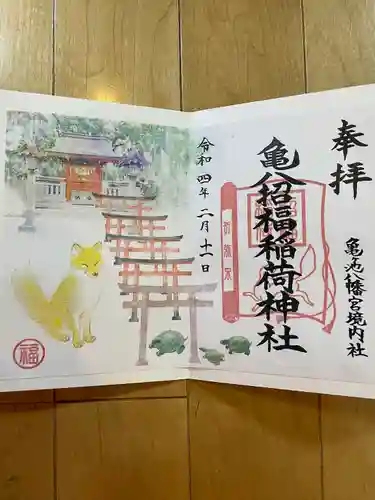 奉拝
亀池八幡宮境内社
亀八招福稲荷神社
令和四年二月十一日
福